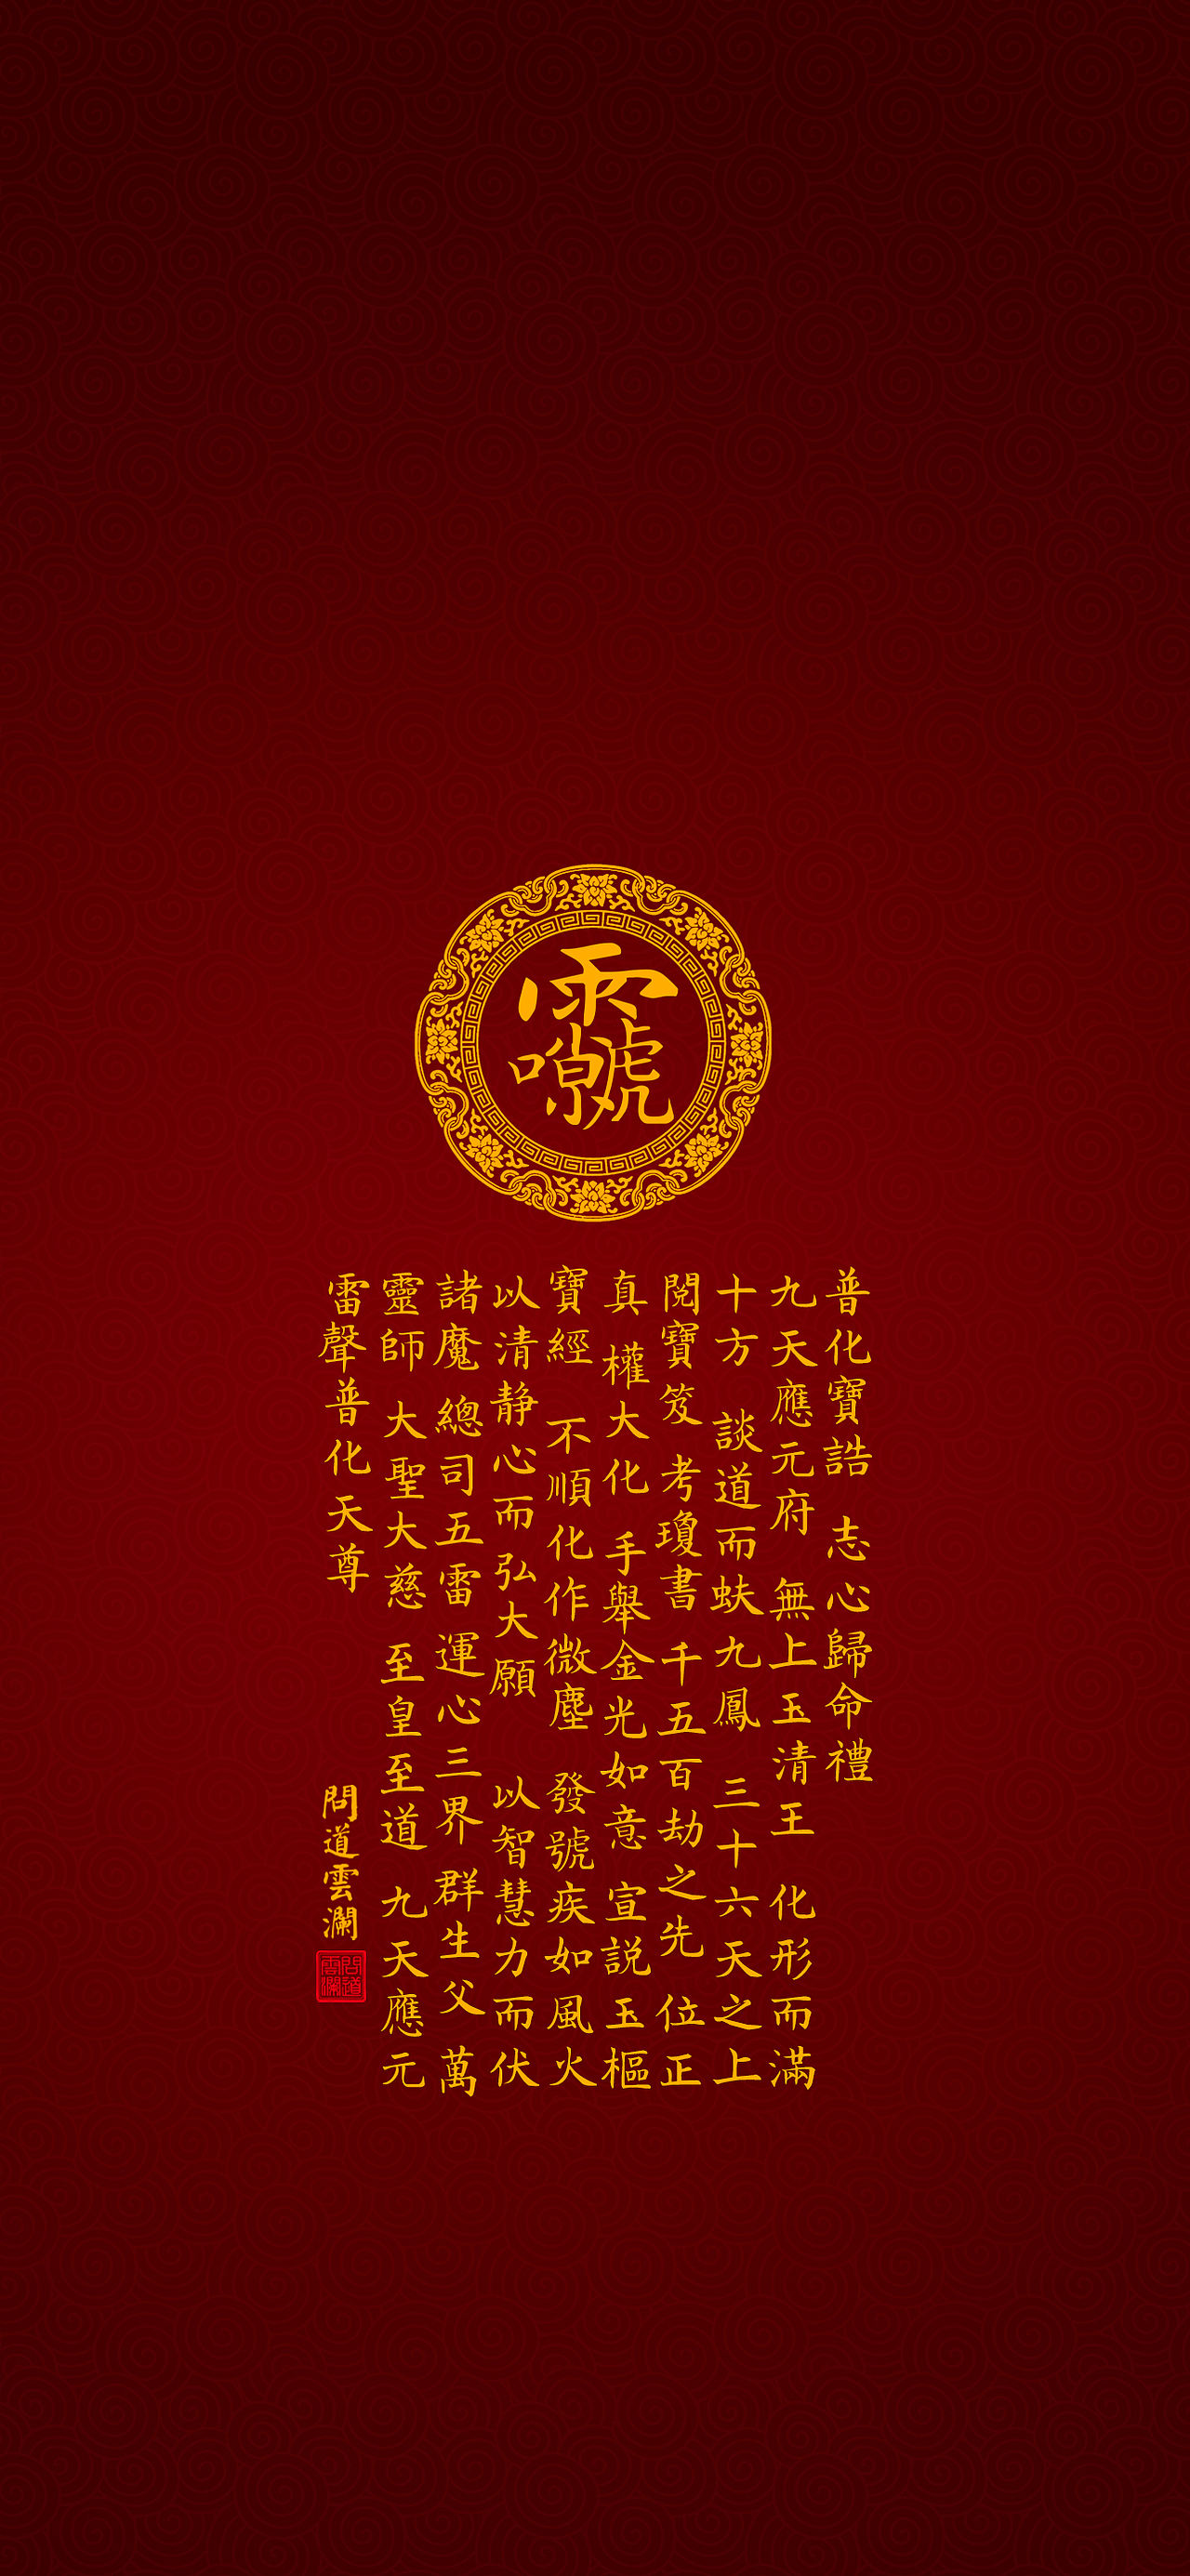 普化寶誥 志心歸命禮
九天應元府 無上玉清王 化形而滿
十方 談道而蚨九鳳 三十六天之上
閱寶笈 考瓊書 千五百劫之先 位正
真 權大化 手舉金光如意 宣説玉樞
寶經 不順化作微塵 發號疾如風火
以清静心而弘大願 以智慧力而伏
諸魔 總司五雷 運心三界 群生父 萬
靈師 大聖大慈 至皇至道 九天應元
雷聲普化天尊
問道雲瀾
問道
雲瀾